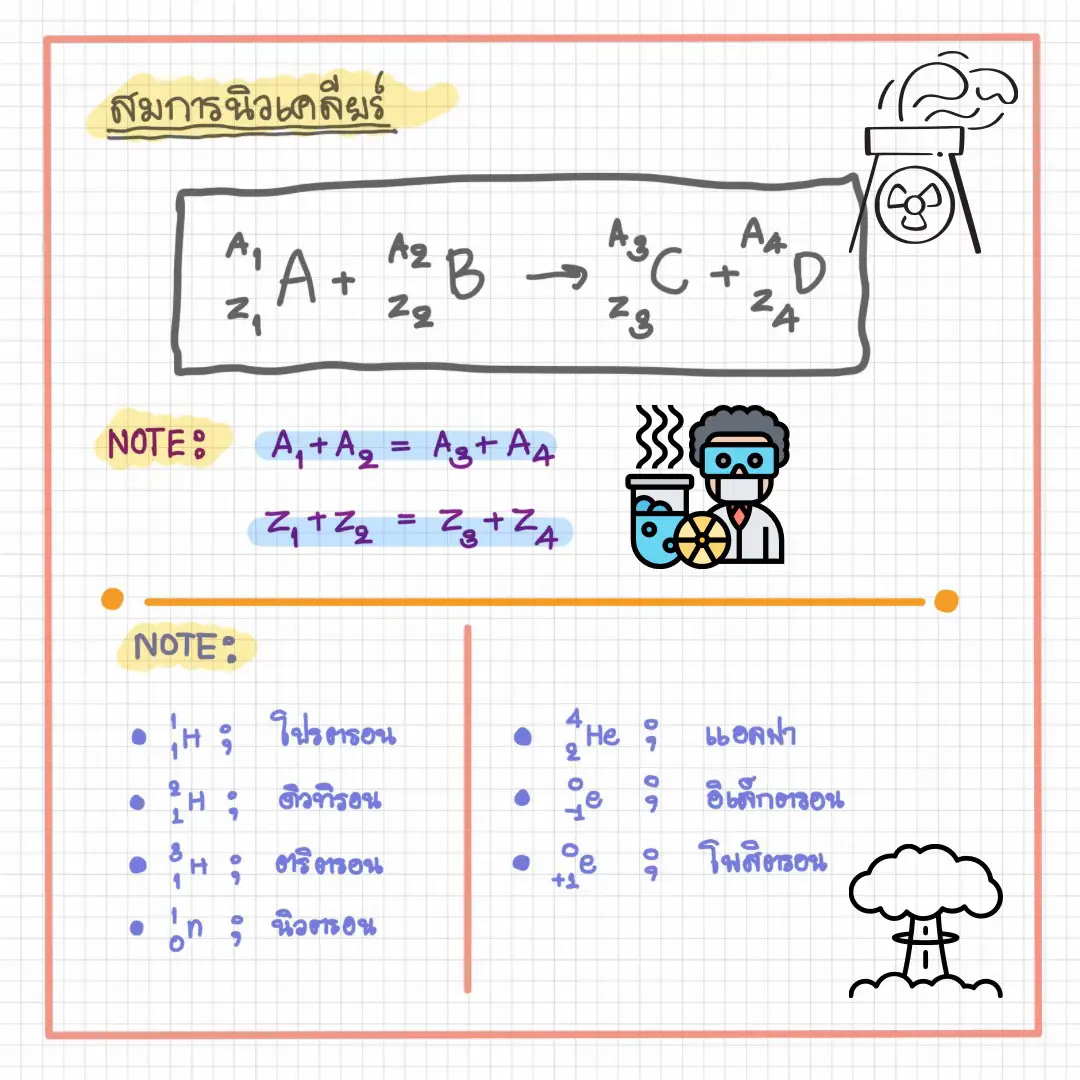 สมการนิวเคลียร์
^{A₁}_{Z₁}A + ^{A₂}_{Z₂}B → ^{A₃}_{Z₃}C + ^{A₄}_{Z₄}D
NOTE:
A₁+A₂ = A₃+A₄
Z₁+Z₂ = Z₃+Z₄
NOTE:
• ^{1}_{1}H ; โปรตรอน
• ^{2}_{1}H ; ดิวทิรอน
• ^{3}_{1}H ; ตริตรอน
• ^{1}_{0}n ; นิวตรอน
• ^{4}_{2}He ; แอลฟา
• ^{0}_{-1}e ; อิเล็กตรอน
• ^{0}_{+1}e ; โพสิตรอน